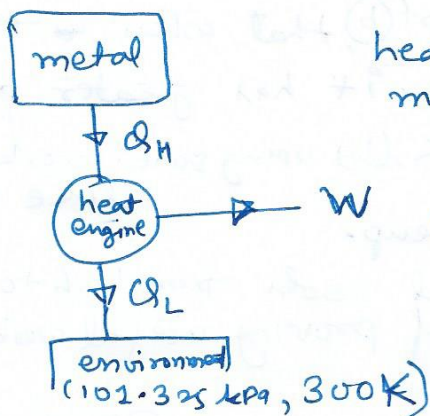 metal
hea
m
Q_H
heat
engine
W
Q_L
environment
(101.325 kPa, 300K)